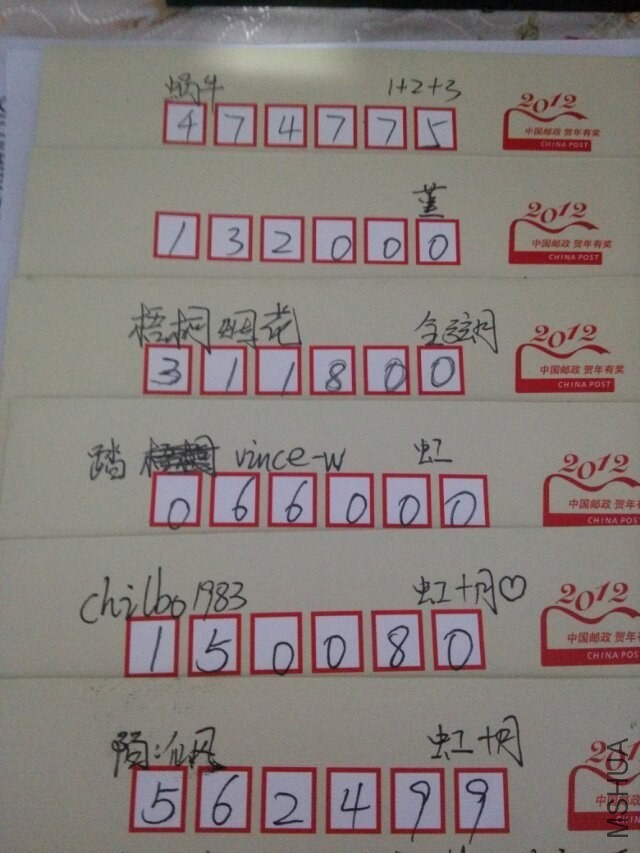 蜗牛 1+2+3
474775
2012
中国邮政 贺年有奖
CHINA POST
薰
132000
2012
中国邮政 贺年有奖
CHINA POST
梧桐烟花
311800
2012
中国邮政 贺年有奖
CHINA POST
踏 vince-w 虹
066000
2012
中国邮政 贺年有
CHINA POST
chilbo1983 虹+月♡
150080
2012
中国邮政 贺年有
CHINA POST
虹+月
562499
201
中国邮政
CHINA
MSHUA